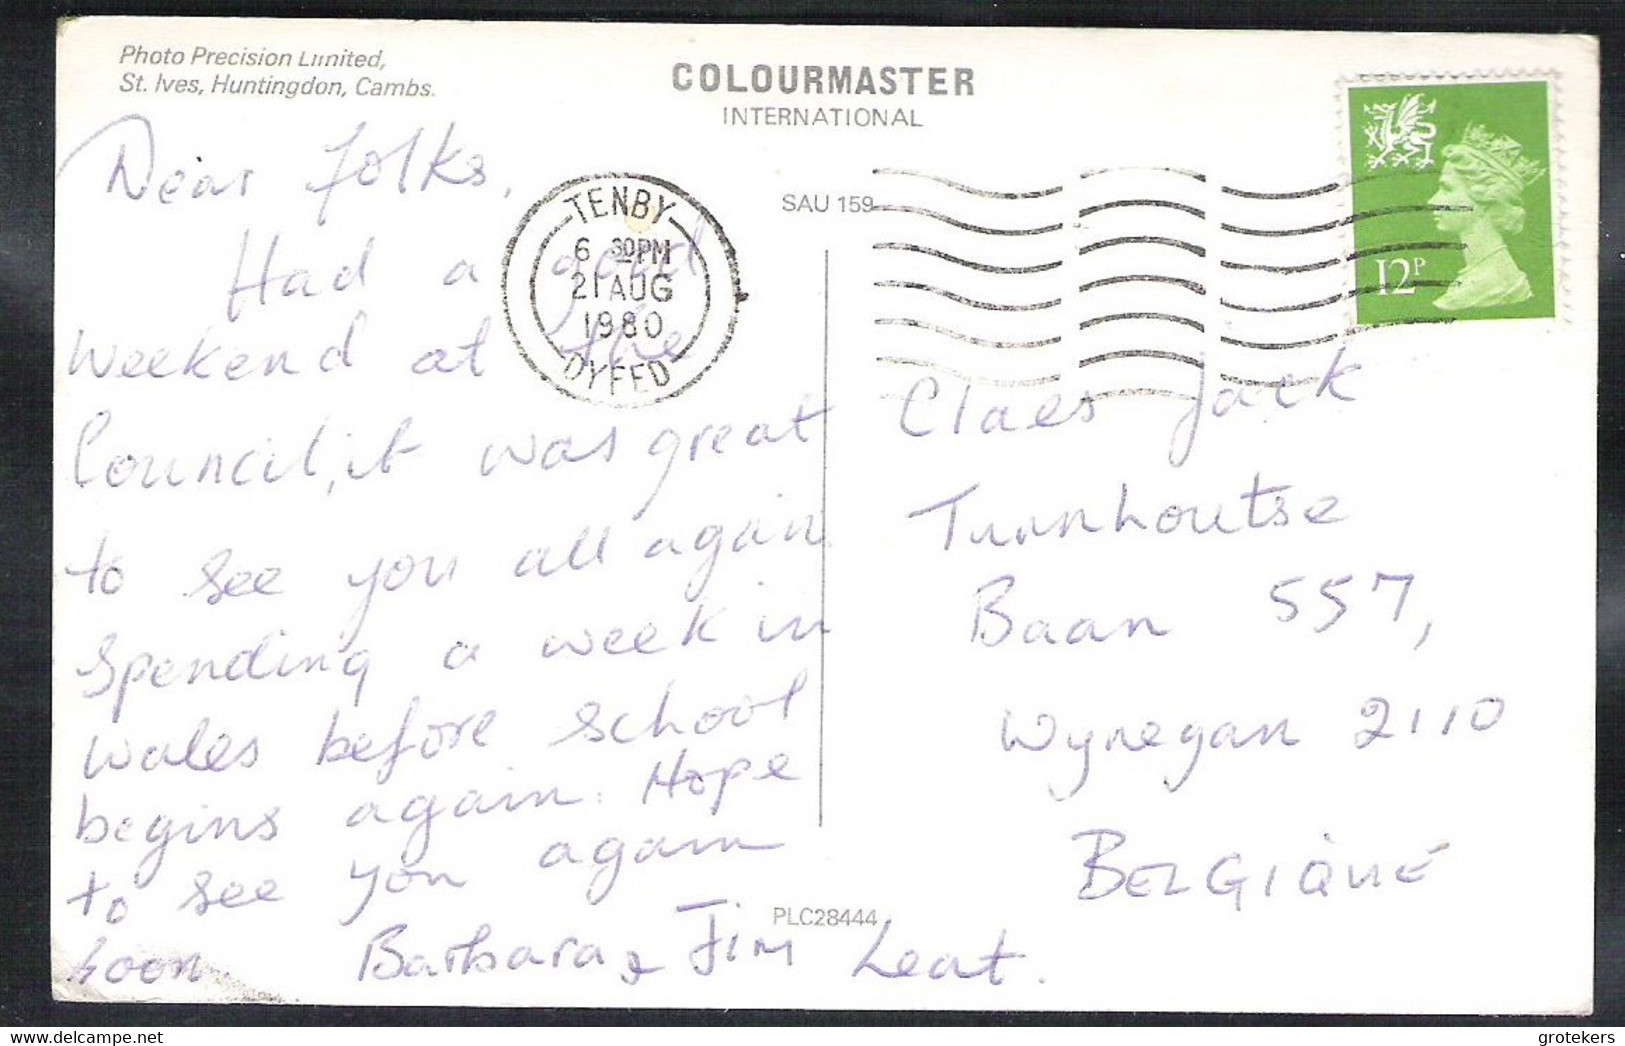 Photo Precision Limited,
St. Ives, Huntingdon, Cambs.
COLOURMASTER
INTERNATIONAL
SAU 159
TENBY
6 30PM
21 AUG
1980
DYFED
12P
Dear folks,
Had a good
weekend at the
Council, it was great
to see you all again.
Spending a week in
Wales before school
begins again. Hope
to see you again
soon. Barbara & Jim Leat.
PLC28444
Claes Jack
Turnhoutse
Baan 557,
Wynegan 2110
BELGIQUÉ
grotekers // delcampe.net